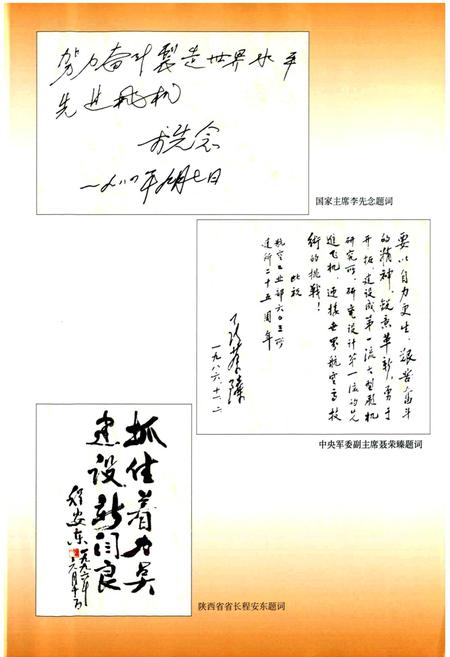 努力奋斗製造世界水平
先进飞机
李先念
一九八四年九月七日
国家主席李先念题词
要以自力更生、艰苦奋斗
的精神，锐意革新，勇于
开拓，建设成第一流大型飞机
研究所，研究设计第一流的先
进飞机，迎接世界航空高技
术的挑战！
此祝
航空工业部六〇三所
建所二十五周年
聂荣臻
一九八六、十一、二
中央军委副主席聂荣臻题词
抓住着力点
建设新阎良
程安东
一九九六年
六月十一日
陕西省省长程安东题词